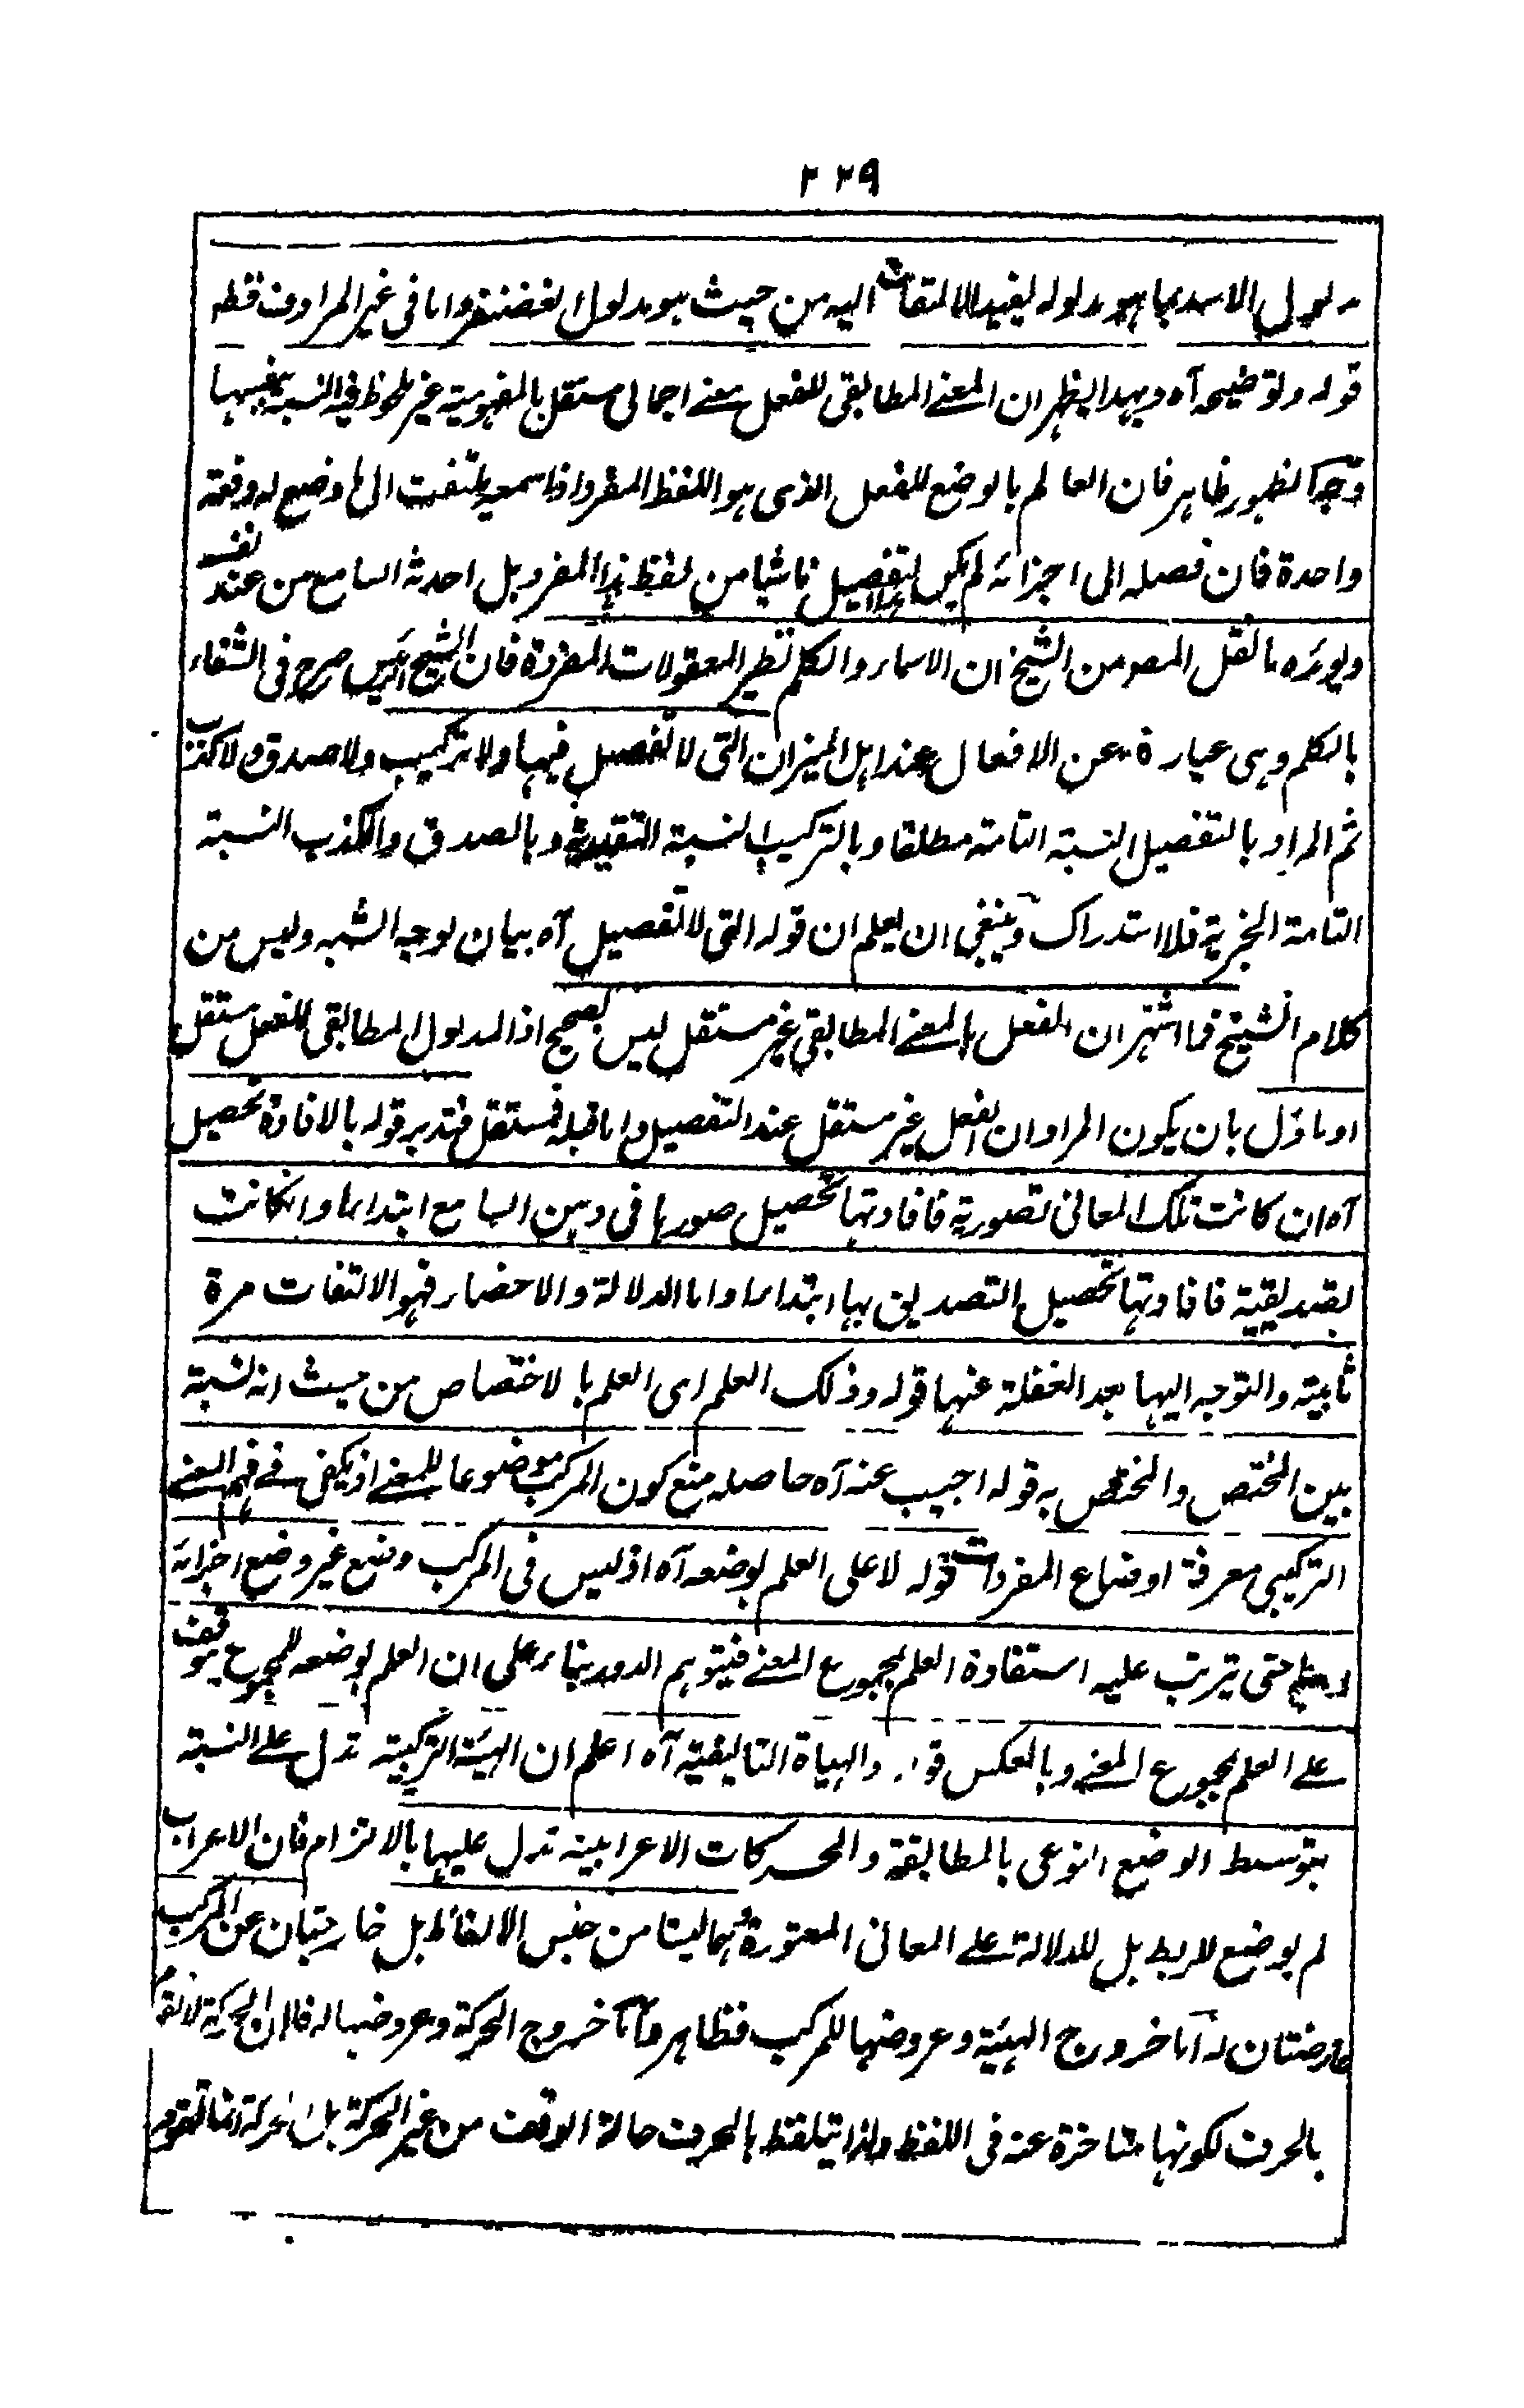 ٢٢٩
مدلول الاسد بما هو مدلوله ليفيد الالتفات اليه من حيث هو مدلول الغضنفر واما فى غير المرادف فقط
قوله وتوضيحه آه وبهذا يظهر ان المعنے المطابقى للفعل معنے اجمالى مستقل بالمفهومية غير ملحوظ فيه النسبة بنفسها
وجه الظهور ظاهر فان العالم بالوضع للفعل الذى هو اللفظ المفرد اذا سمعه يلتفت الى ما وضع له دفعة
واحدة فان فصله الى اجزائه لم يكن التفصيل ناشيا من لفظ هذا المفرد بل احدثه السامع من عند نفسه
ويؤيده ما نقل المصر من الشيخ ان الاسماء والكلم نظير المعقولات المفردة فان الشيخ الرئيس صرح فى الشفاء
بالكلم وهى عبارة عن الافعال عند اهل الميزان التى لا تفصيل فيها ولا تركيب ولا صدق ولا كذب
ثم المراد بالتفصيل النسبة التامة مطلقا وبالتركيب النسبة التقييدية وبالصدق والكذب النسبة
التامة الخبرية فلا استدراك وينبغى ان يعلم ان قوله التى لا تفصيل آه بيان لوجه الشبه وليس من
كلام الشيخ فما اشتهر ان الفعل بالمعنے المطابقى غير مستقل ليس بصحيح اذ المدلول المطابقى للفعل مستقل
او ماؤل بان يكون المراد ان الفعل غير مستقل عند التفصيل واما قبله فمستقل فتدبر قوله بالافادة تحصيل
آه ان كانت تلك المعانى تصورية فافادتها تحصيل صورها فى ذهن السامع ابتداء واما وانكانت
تصديقية فافادتها تحصيل التصديق بها ابتداء واما الدلالة والاحضار فهو الالتفات مرة
ثانية والتوجه اليها بعد الغفلة عنها قوله وذلك العلم اى العلم بالاختصاص من حيث انه نسبة
بين المختص والمختص به قوله اجيب عنه آه حاصله منع كون المركب موضوعا للمعنے اذ يكفى فے فهم المعنے
التركيبى معرفة اوضاع المفردات قوله لا على العلم بوضعه آه اذ ليس فى المركب وضع غير وضع اجزائه
حتى يترتب عليه استفادة العلم بمجموع المعنے فيتوهم الدور بناء على ان العلم بوضعه للمجموع يتوقف
علے العلم بمجموع المعنے وبالعكس قوله والهيأة التاليفية آه اعلم ان الهيئة التركيبية تدل علے النسبة
بتوسط الوضع النوعى بالمطابقة والحركات الاعرابية تدل عليها بالالتزام فان الاعراب
لم يوضع للربط بل للدلالة علے المعانى المعتورة وهما ليستا من جنس الالفاظ بل خارجتان عن المركب
عارضتان له اما خروج الهيئة وعروضها للمركب فظاهر واما خروج الحركة وعروضها له فلان الحركة لا تقوم
بالحرف لكونها متاخرة عنه فى اللفظ ولذا يتلفظ بالحرف حالة الوقف من غير الحركة بل الحركة انما تقوم